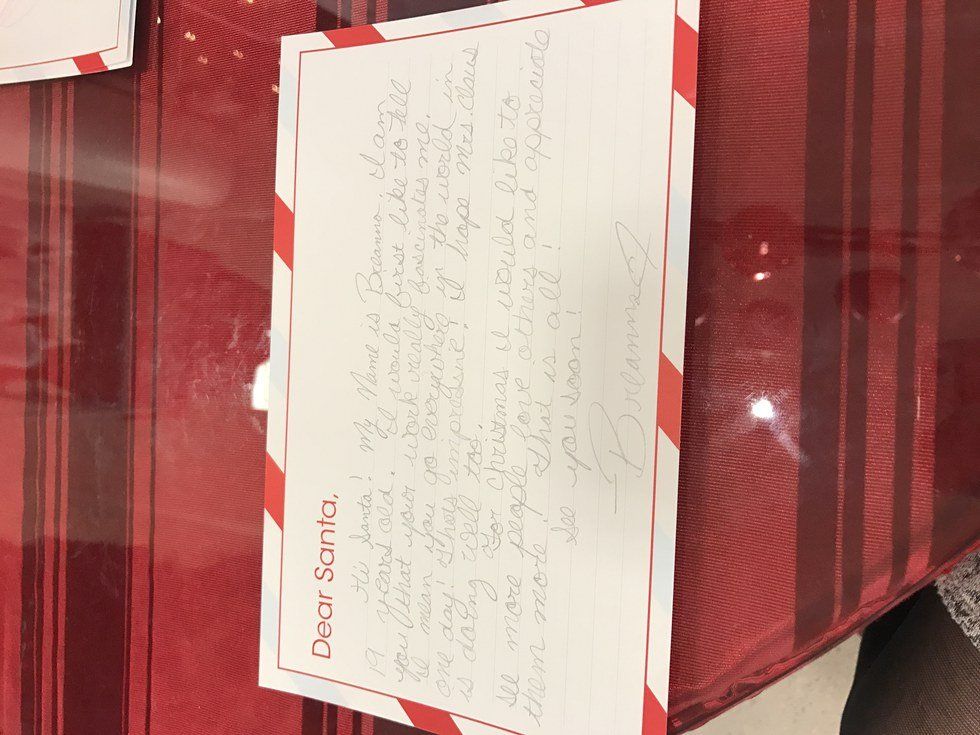 Dear Santa,
Hi Santa! My Name is Brianna. I am
19 years old. I would first like to tell
you that your work really fascinates me.
I mean you go everywhere in the world in
one day! Thats impressive! I hope Mrs. Claus
is doing well too.
For Christmas I would like to
see more people love others and appreciate
them more. That is all!
See you soon!
-Brianna